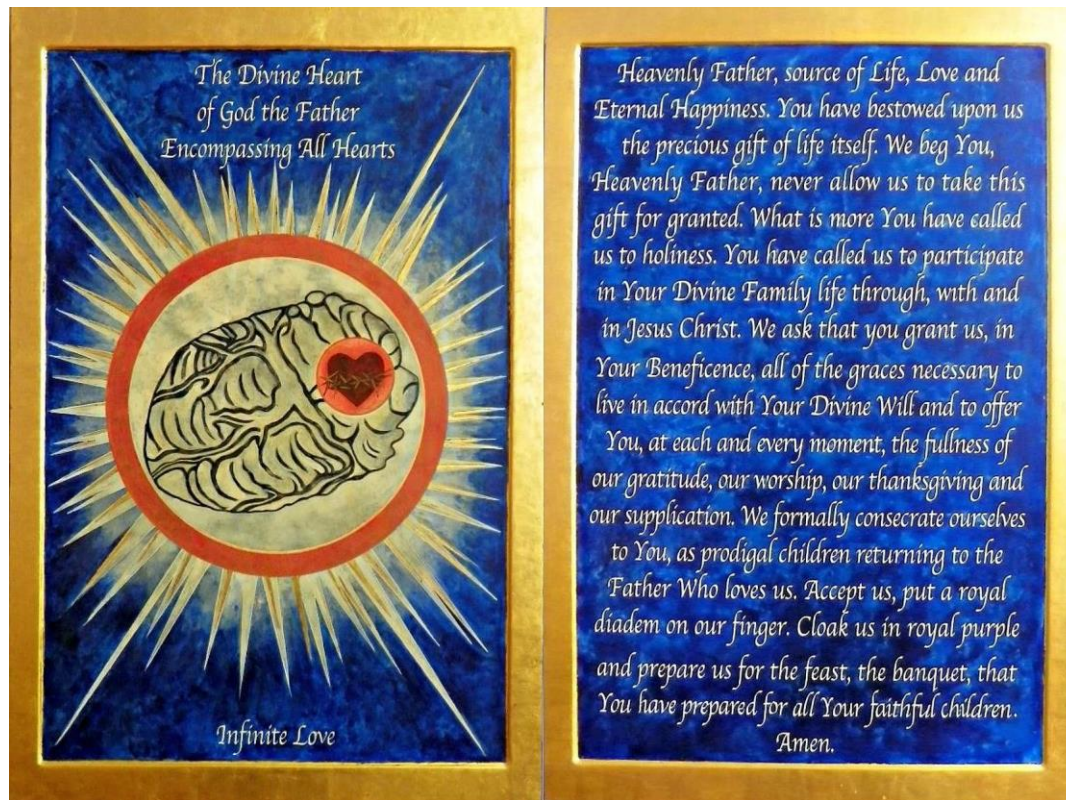 The Divine Heart
of God the Father
Encompassing All Hearts
Infinite Love
Heavenly Father, source of Life, Love and
Eternal Happiness. You have bestowed upon us
the precious gift of life itself. We beg You,
Heavenly Father, never allow us to take this
gift for granted. What is more You have called
us to holiness. You have called us to participate
in Your Divine Family life through, with and
in Jesus Christ. We ask that you grant us, in
Your Beneficence, all of the graces necessary to
live in accord with Your Divine Will and to offer
You, at each and every moment, the fullness of
our gratitude, our worship, our thanksgiving and
our supplication. We formally consecrate ourselves
to You, as prodigal children returning to the
Father Who loves us. Accept us, put a royal
diadem on our finger. Cloak us in royal purple
and prepare us for the feast, the banquet, that
You have prepared for all Your faithful children.
Amen.